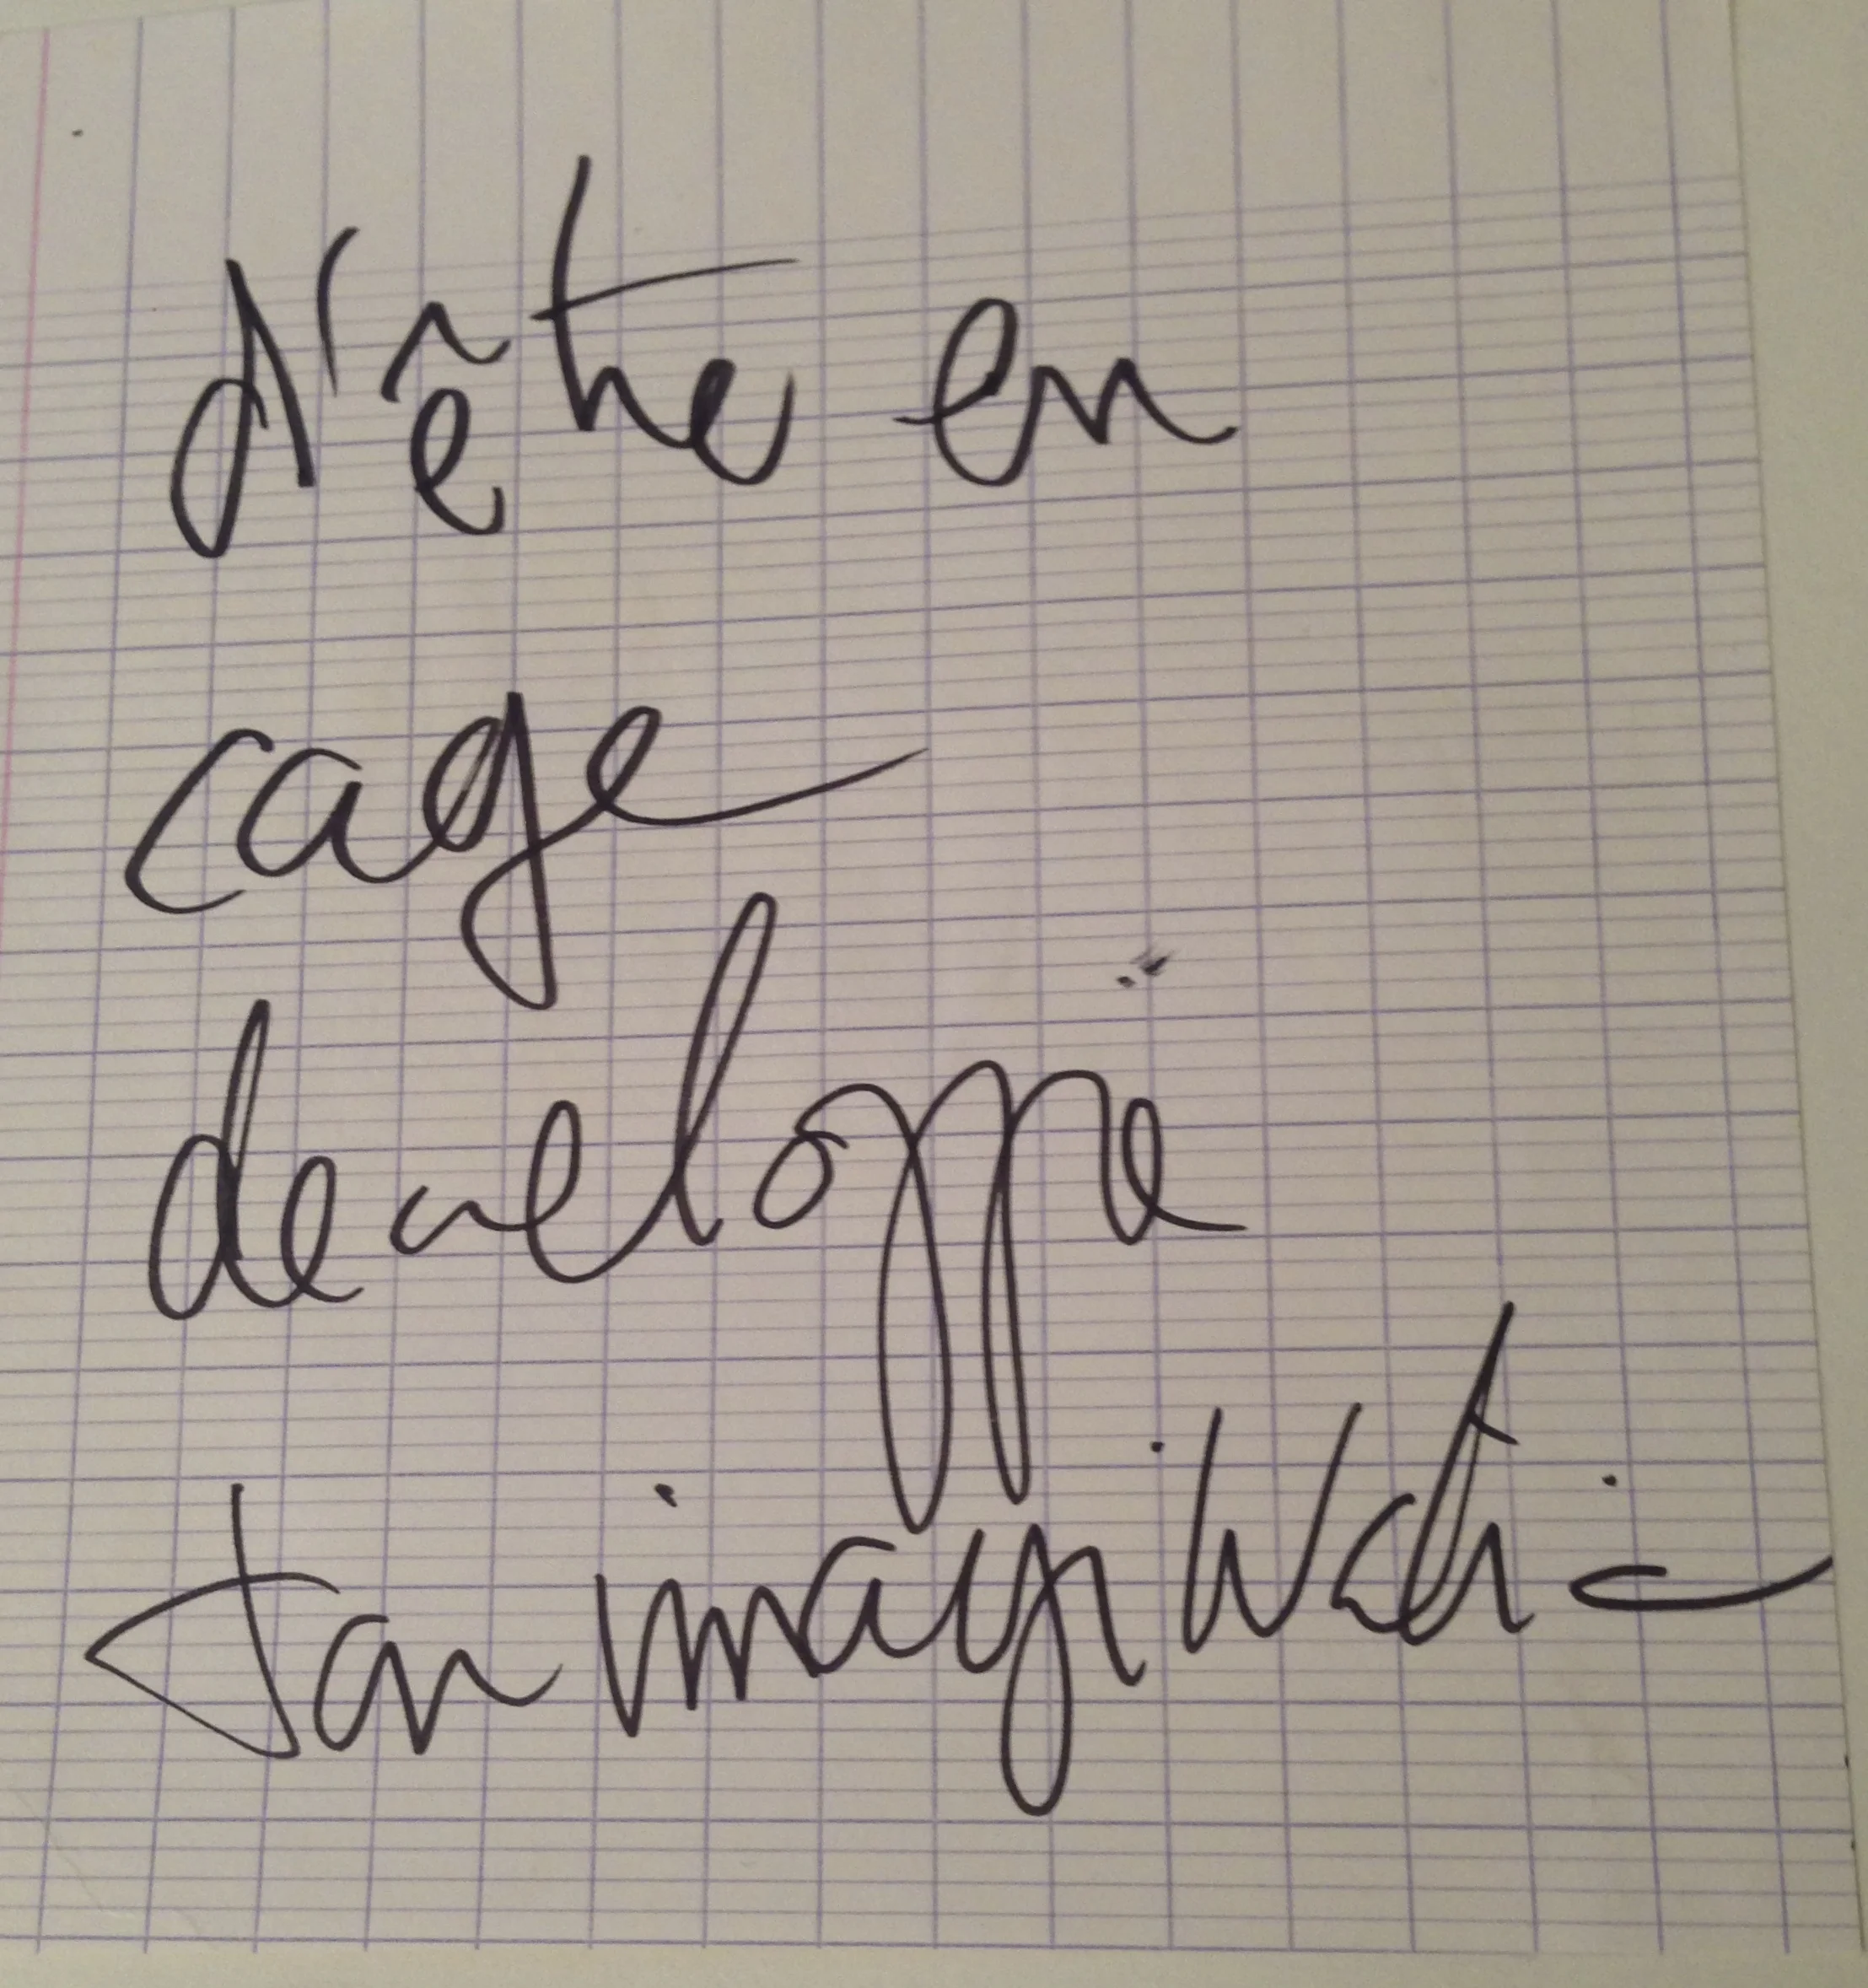 d'être en
cage
developpe
ton imagination